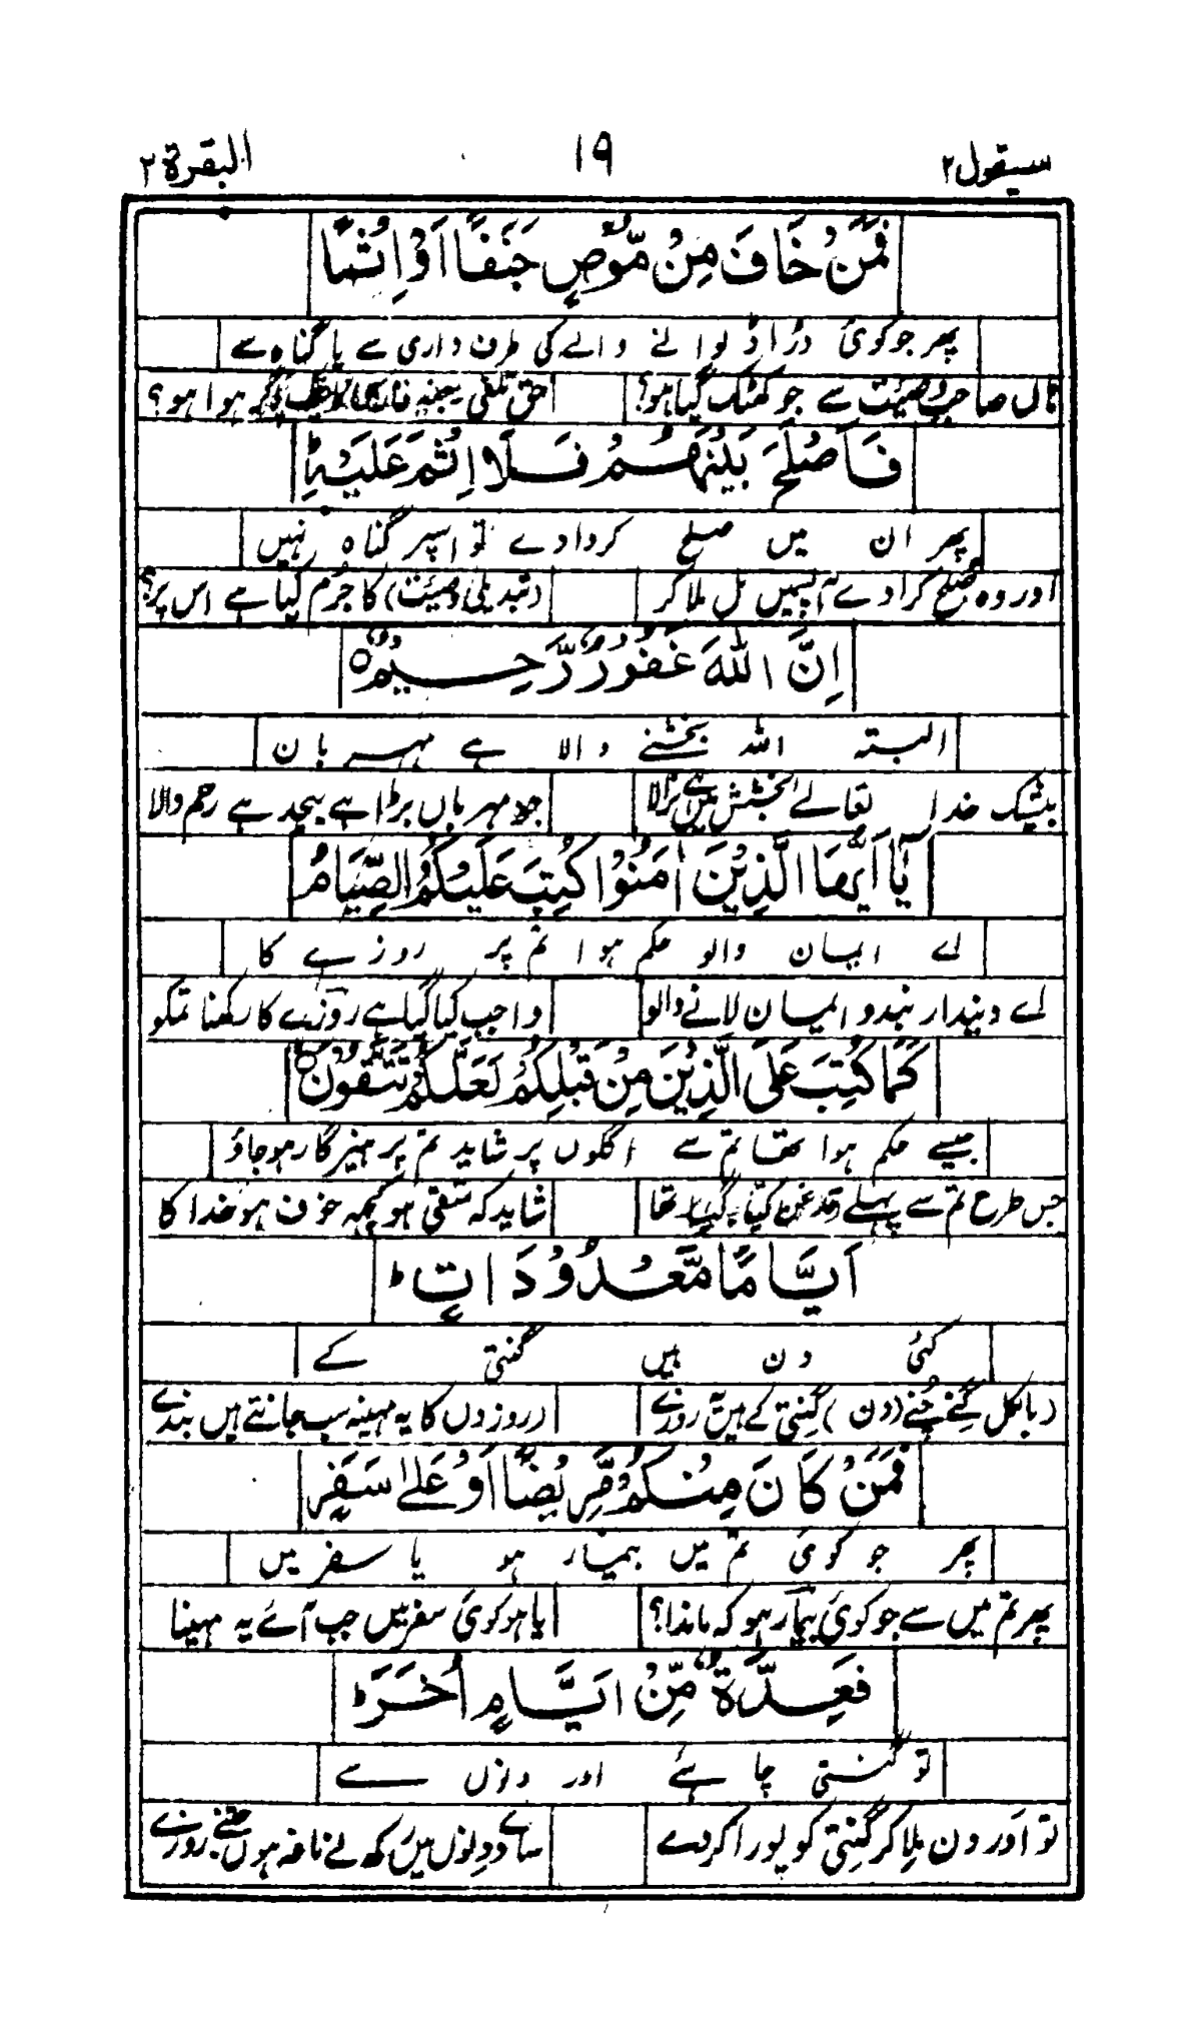 سیقول ۲ ۱۹ البقرة ۲
فَمَنْ خَافَ مِنْ مُّوْصٍ جَنَفًا اَوْ اِثْمًا
پھر جو کوئی ڈرا دلوانے والے کی طرف داری سے یا گناہ سے
ہاں صاحب وصیت سے جو کھٹک گیا ہو؟ حق تلفی ہوا ہو؟
فَاَصْلَحَ بَيْنَهُمْ فَلَا اِثْمَ عَلَيْهِ ؕ
پھر ان میں صلح کردادے تو اسپر گناہ نہیں
اور وہ صلح کرادے آپسمیں مل ملا کر (تبدیلی وصیت) کا جرم کیا ہے اس پر؟
اِنَّ اللّٰهَ غَفُوْرٌ رَّحِيْمٌ ۝
البتہ اللہ بخشنے والا ہے مہربان
بیشک خدا تعالے بخشش میں ہے نرالا جو مہرباں بڑا ہے بیحد ہے رحم والا
يٰٓا اَيُّهَا الَّذِيْنَ اٰمَنُوْا كُتِبَ عَلَيْكُمُ الصِّيَامُ
اے ایمان والو حکم ہوا تم پر روزے کا
اے دیندار بندو ایمان لانے والو واجب کیا گیا ہے روزے کا رکھنا تمکو
كَمَا كُتِبَ عَلَى الَّذِيْنَ مِنْ قَبْلِكُمْ لَعَلَّكُمْ تَتَّقُوْنَ ۝
جیسے حکم ہوا تھا تم سے اگلوں پر شاید تم پرہیزگار ہو جاؤ
جس طرح تم سے پہلے قدغن کیا گیا تھا شاید کہ متقی ہو کچہہ خوف ہو خدا کا
اَيَّامًا مَّعْدُوْدَاتٍ ؕ
کئی دن ہیں گنتی کے
(بالکل گنے چنے (دن) گنتی کے ہیں یہ روزے (روزوں کا یہ مہینہ سب جانتے ہیں بندے
فَمَنْ كَانَ مِنْكُمْ مَّرِيْضًا اَوْ عَلٰى سَفَرٍ
پھر جو کوئی تم میں بیمار ہو یا سفر میں
پھر تم میں سے جو کوئی بیمار ہو کہ ماندا؟ یا ہو کوئی سفر میں جب آئے یہ مہینا
فَعِدَّةٌ مِّنْ اَيَّامٍ اُخَرَ ؕ
تو گنتی چاہئے اور دنوں سے
تو اور دن ملا کر گنتی کو پورا کردے سارے دونوں میں رکھ لے ناغہ ہوں جتنے روزے